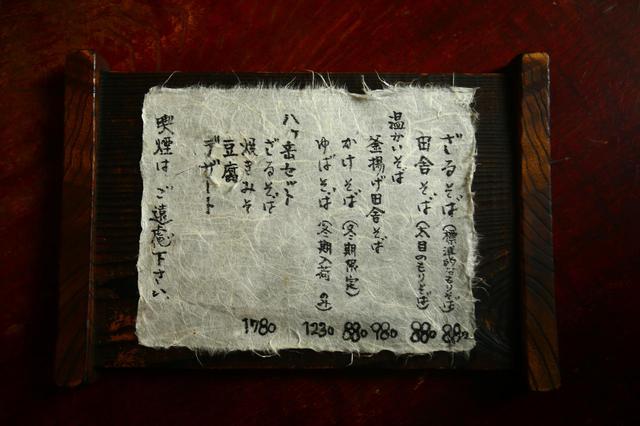 ざるそば(標準的なもりそば) 880
田舎そば(太目のもりそば) 880
温かいそば
釜揚げ田舎そば 980
かけそば(冬期限定) 880
ゆばそば(冬期入荷のみ) 1230
八ヶ岳セット
ざるそば
焼きみそ
豆腐
デザート
1780
喫煙はご遠慮下さい